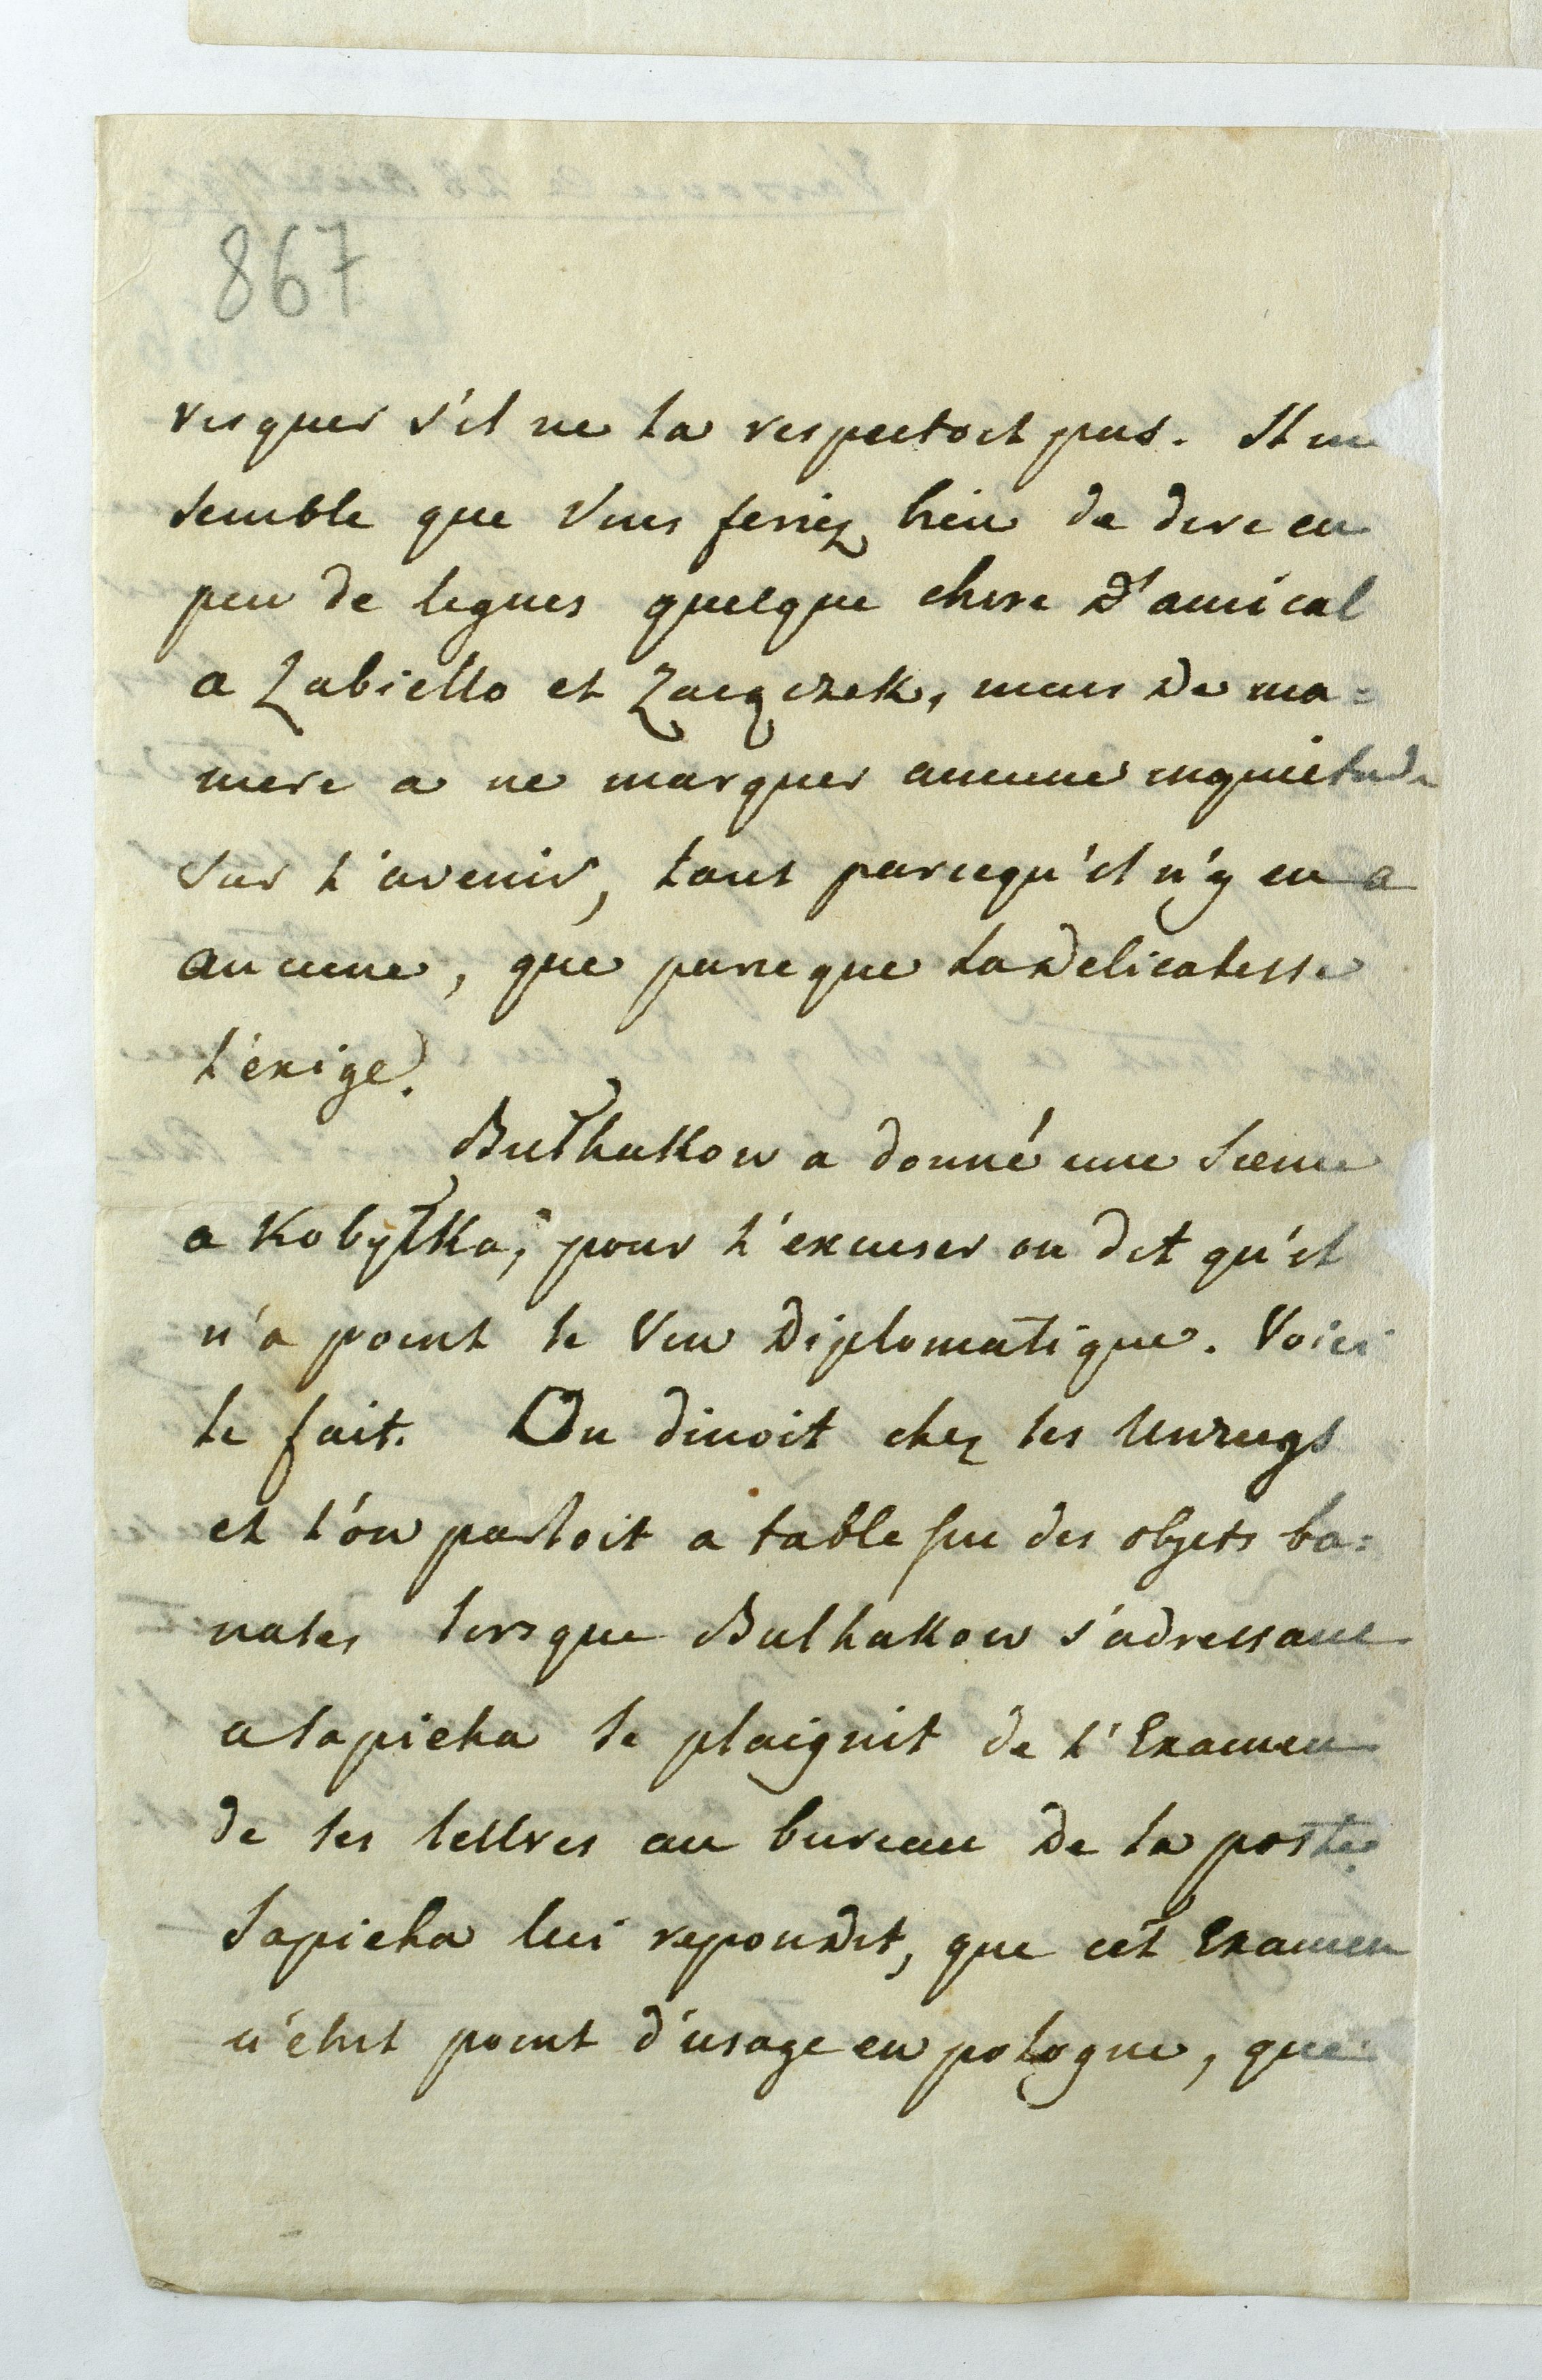 867
risquer s'il ne la respectoit pas. Il me
semble que Vous feriez bien de dire en
peu de lignes quelque chose d'amical
a Zabiello et Zaĭączek, mais de ma=
niere a ne marquer aucune inquietude
sur l'avenir, tant parcequ'il n'y en a
aucune, que parceque la delicatesse
l'exige.
Bułhakow a donné une Scene
a Kobyłka, pour l'excuser on dit qu'il
n'a point le Vin Diplomatique. Voici
le fait. On dinoit chez les Unrugs
et l'on parloit a table sur des objets ba=
nales lorsque Bulhakow s'adressant
a Sapieha se plaignit de l'Examen
de ses lettres au bureau de la poste
Sapieha lui repondit, que cet Examen
n'etoit point d'usage en pologne, que